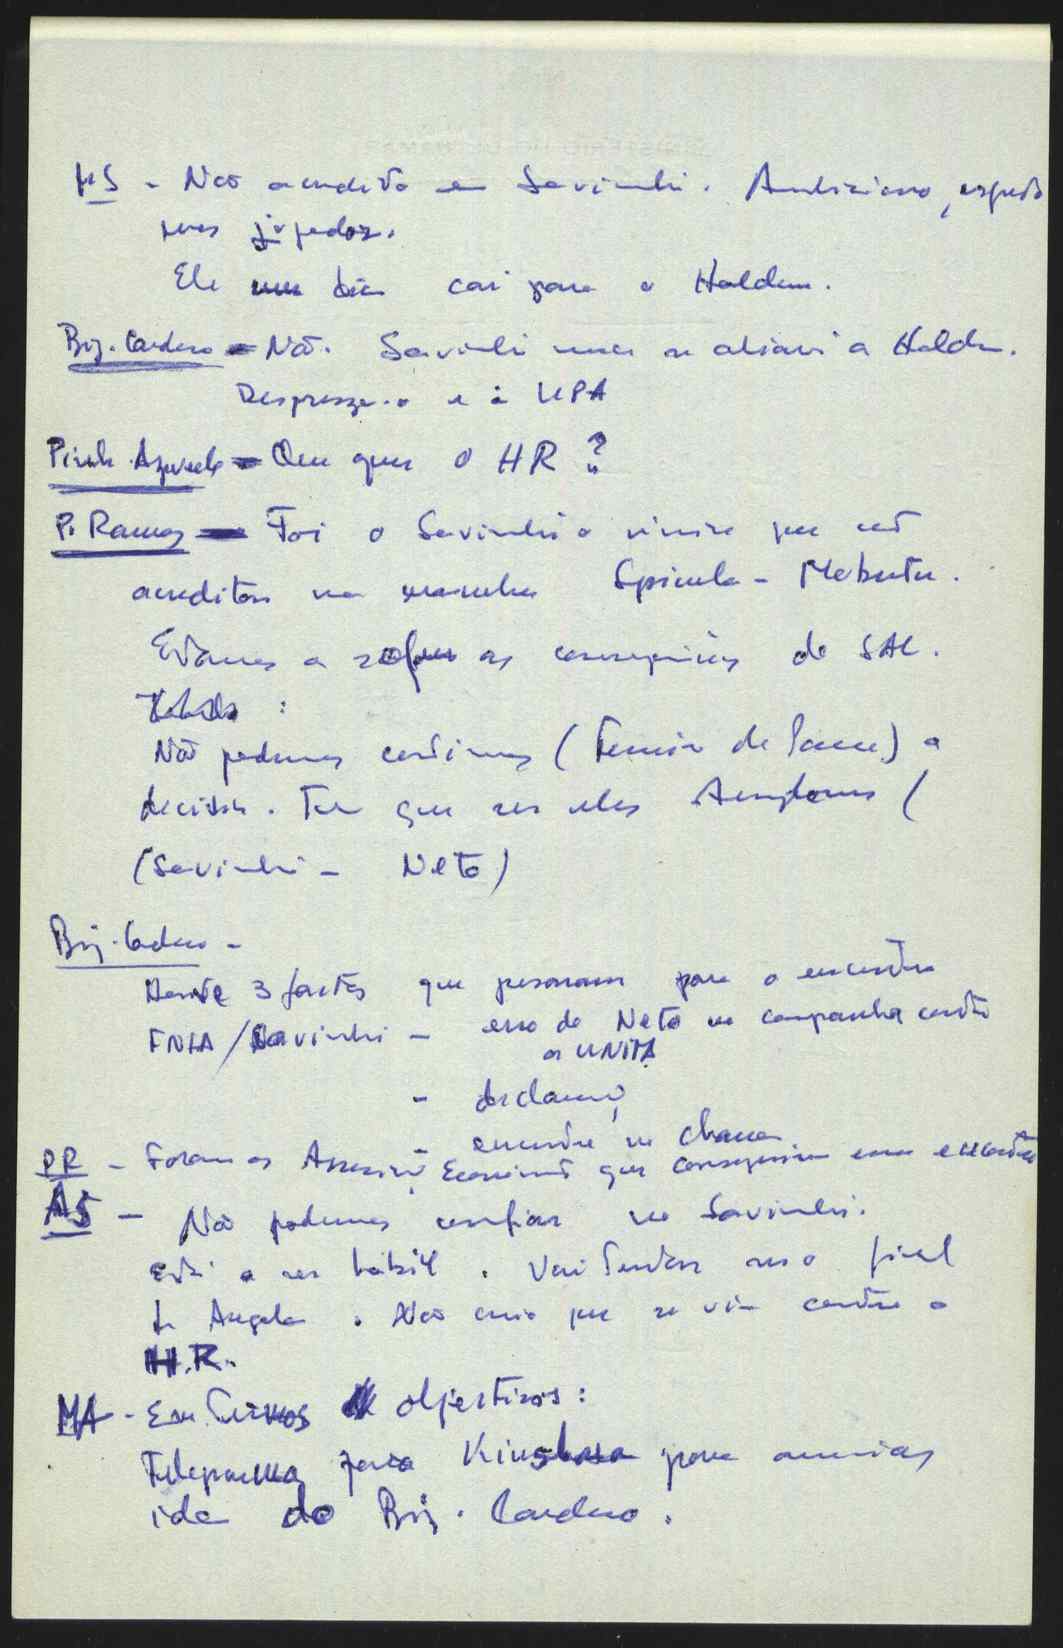 MS - Não acredito em Savimbi. Ambicioso, esperto
mas jogador.
Ele um dia cai para o Holden.
Brig. Cardoso - Não. Savimbi nunca se aliaria a Holden.
Despreza-o e à UPA
Pinh. Azevedo - Que quer o HR?
P. Ramos - Foi o Savimbi o único que não
acreditou na manobra Spínola - Mobutu.
Estamos a sofrer as consequências do SAL.
Não podemos continuar ( de ) a
decisão. Tem que ser eles Angolanos (
(Savimbi - Neto)
Brig. Cardoso -
3 factos que pesaram para o encontro
FNLA/Savimbi - erro do Neto na campanha contra
a UNITA
- declarações
- encontro na chana
PR - Foram os Económ que conseguiram esse encontro
AS - Não podemos confiar no Savimbi.
Está a ser hábil. Vai tentar ser o fiel
de Angola. Não creio que se vire contra o
H.R.
MA - Em termos objectivos:
Telegrama para Kinshasa para anunciar
ida do Brig. Cardoso.